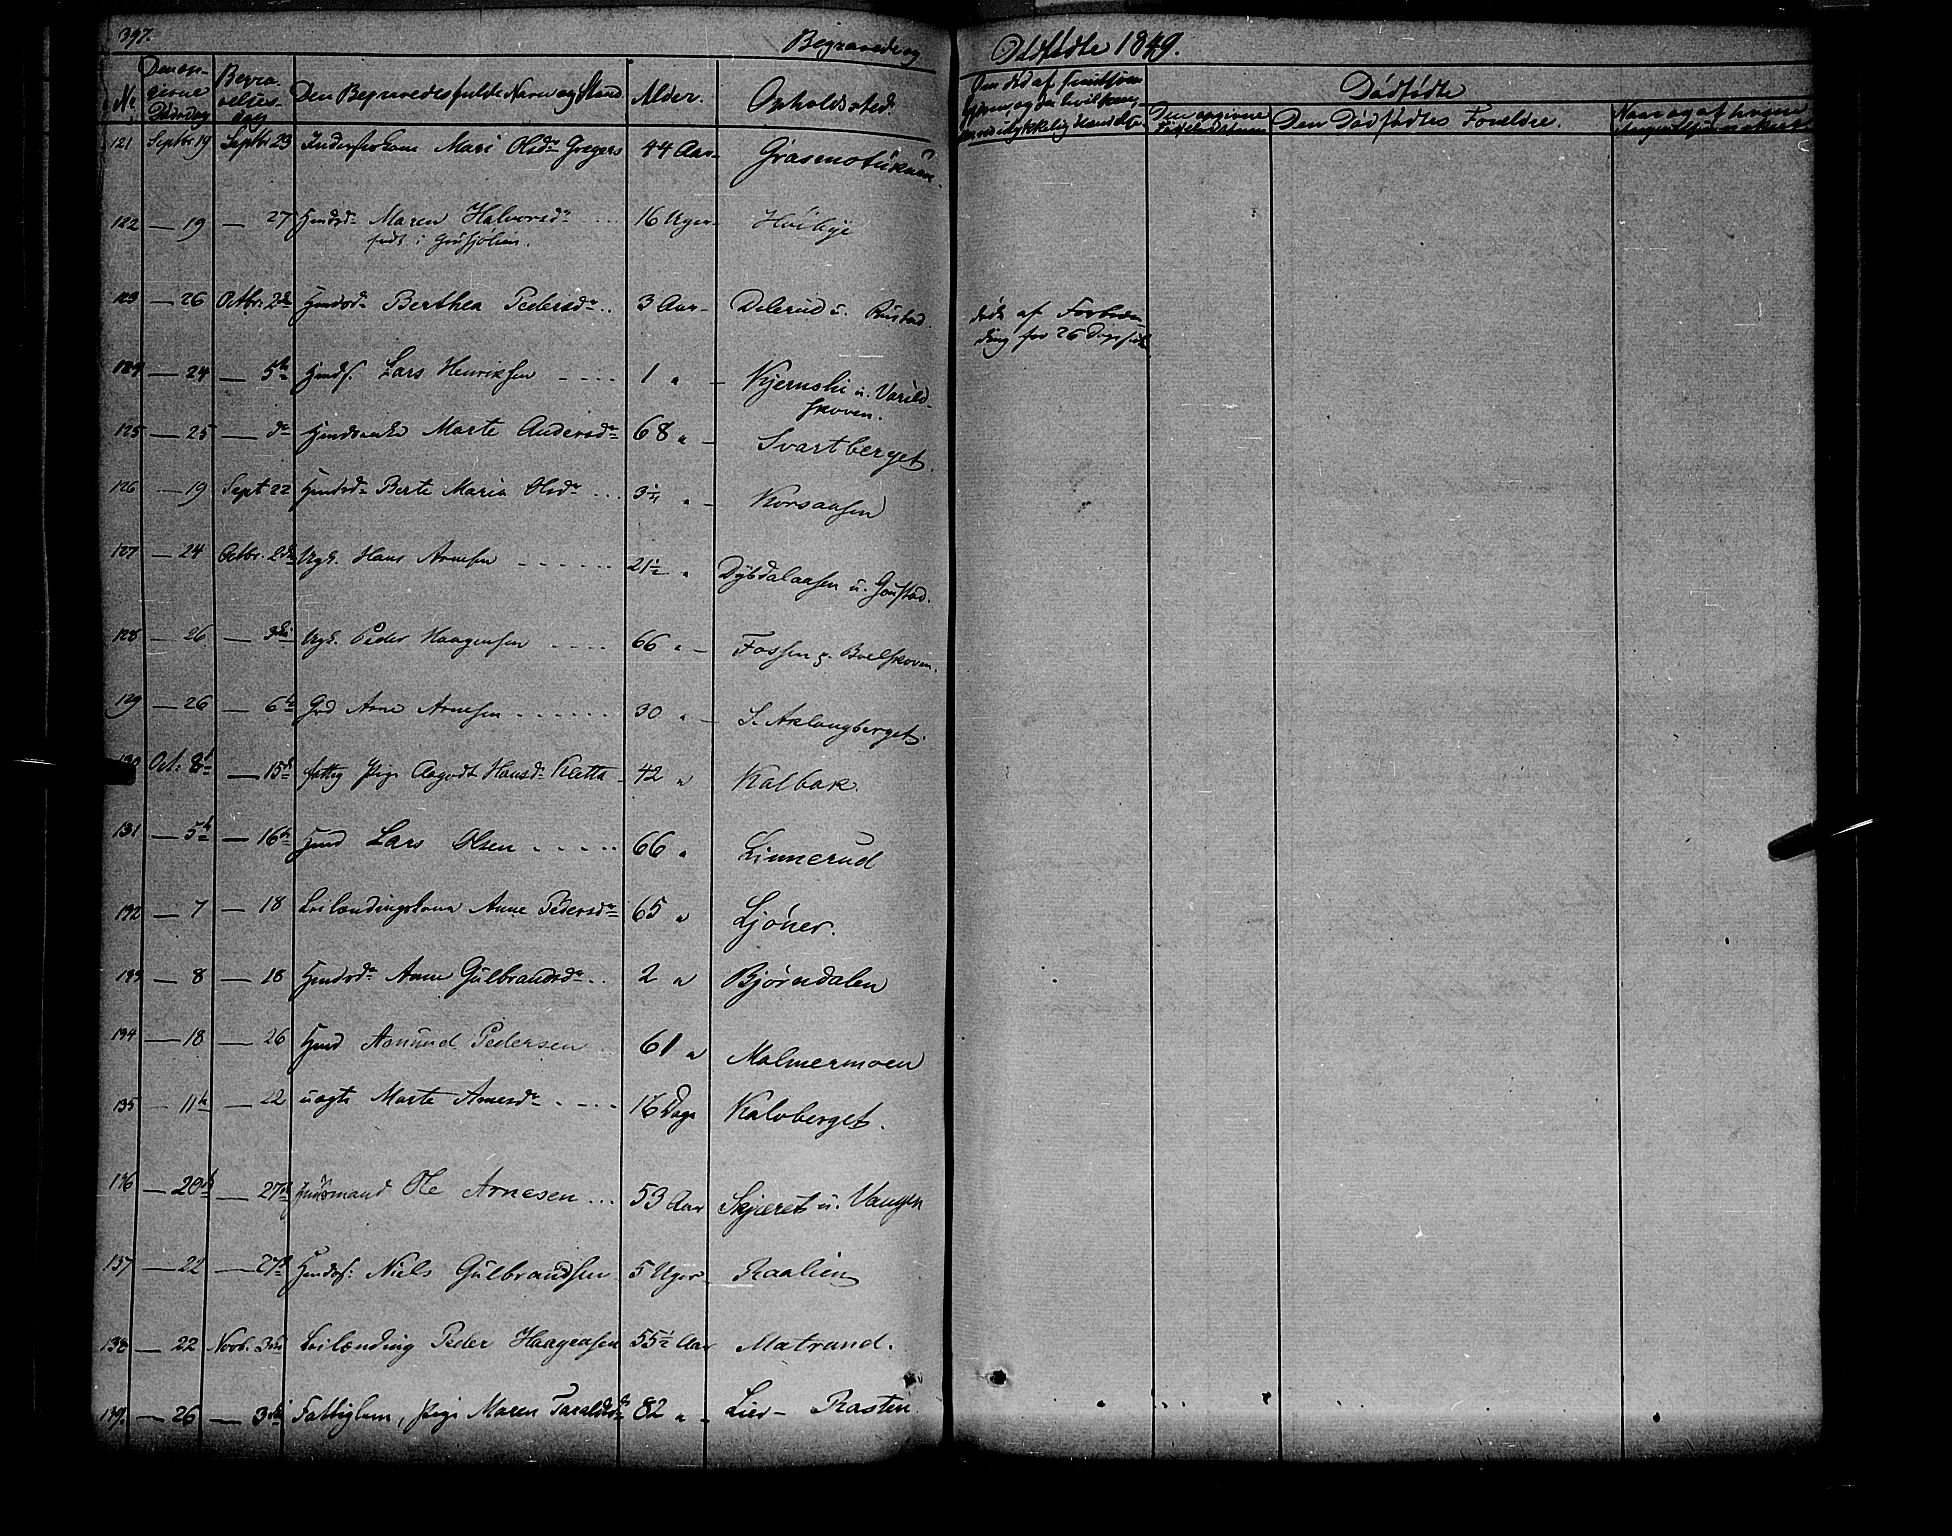 397.
Begravede og Dødfødte 1849.
No
Den opgivne Dødsdag
Begravelses-dag
Den Begravedes fulde Navn og Stand
Alder.
Opholdssted.
Dødfødte
Den opgivne Fødselsdatum
Den Dødfødtes Forældre.
121 Septbr 19 Septbr 23 Inderstkone Mari Olsdr Gregers 44 Aar Grasmotükuen.
122 — 19 — 27 Hmdsdr Maren Halvorsdr 16 Uger
født i
123 — 26 Octbr. 2den Hmdsdr Berthea Pedersdr 3 Aar Delerud u. Rustad.
døde af Forbræn-
ding
124 — 24 — 5te Hmdss. Lars Henriksen 1 " Kjernsli u. Varild-
skoven.
125 — 25 — do Hmdsenke Marte Andersdr 68 " Svartberget
126 — 19 Sept 22 Hmdsdr Berte Maria Olsdr " Korsaasen
127 — 24 Octbr. 2den Ugk. Hans Arnesen 21½ " Dybdalaasen u. Goustad.
128 — 26 — 3die Ugk. Peder Haagensen 66 " Fossen
129 — 26 — 6te Grd Arne Arnesen 30 " S. Aklangberget.
130 Oct. 8de — 15de fattig Pige Aagodt Hansdr Klette 42 " Kalbak.
131 — 5te — 16de Hmd Lars Olsen 66 " Linnerud
132 — 7 — 18 Leilændingskone Anne Pedersdr 65 " Ljöner.
133 — 8 — 18 Hmdsdr Anne Gülbrandsdr 2 " Bjørndalen
134 — 18 — 26 Hmd Amünd Pedersen 61 " Malmermoen
135 — 11te — 22 uægte Marte Arnesdr 16 Dage Kalvberget.
136 — 20de — 27de Huusmand Ole Arnesen 53 Aar Skjæret u. Vangen
137 — 22 — 27de Hmdss: Niels Gülbrandsen 5 Uger Raalien
138 — 22 Novb. 3die Leilænding Peder Haagensen 55½ Aar Matrand.
139. — 26 — 3die Fattiglem, Pige Maren Taraldsdr 82 " Lier - Rasten